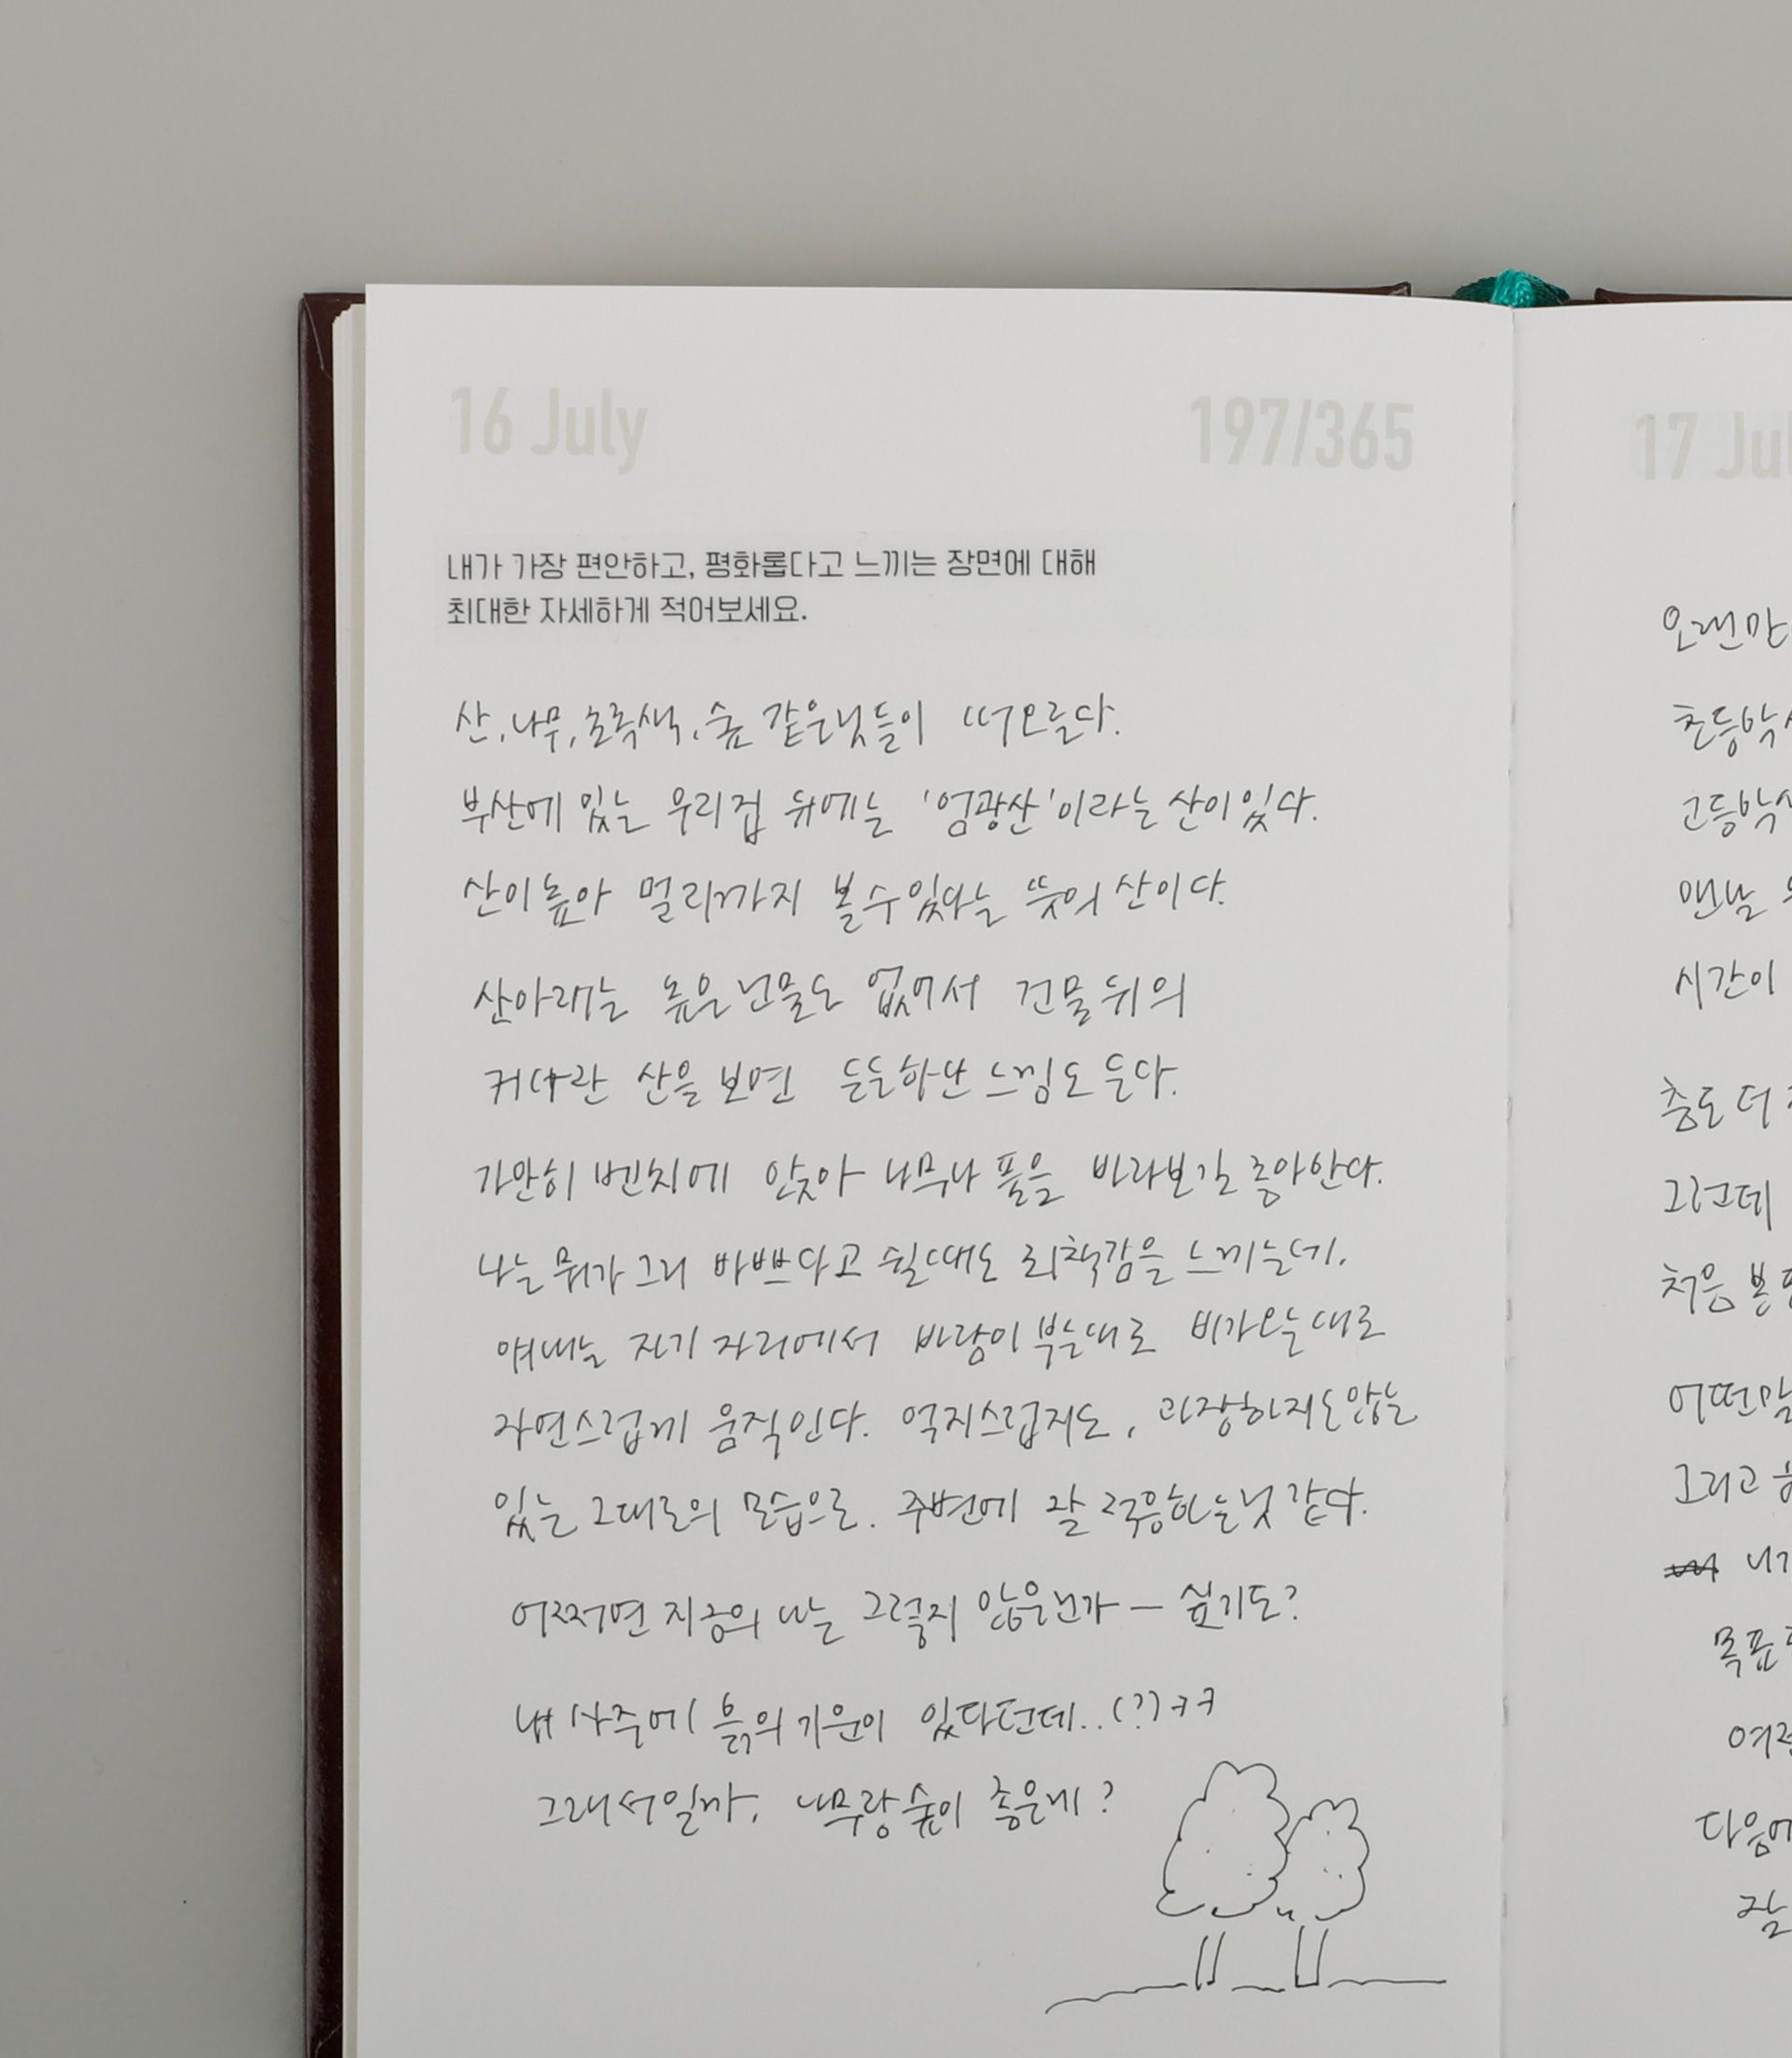 16 July
197/365
내가 가장 편안하고, 평화롭다고 느끼는 장면에 대해
최대한 자세하게 적어보세요.
산, 나무, 초록색, 숲 같은것들이 떠오른다.
부산에 있는 우리집 뒤에는 '엄광산'이라는 산이있다.
산이높아 멀리까지 볼수있다는 뜻의 산이다.
산아래는 높은건물도 없어서 건물뒤의
커다란 산을보면 든든하단 느낌도 든다.
가만히 벤치에 앉아 나무나 풀을 바라보길 좋아한다.
나는 뭐가그리 바쁘다고 쉴때도 죄책감을 느끼는데,
얘네는 자기 자리에서 바람이부는대로 비가오는대로
자연스럽게 움직인다. 억지스럽지도, 과장하지도않는
있는 그대로의 모습으로. 주변에 잘 적응하는것 같다.
어쩌면 지금의 나는 그렇지 않은건가 — 싶기도?
내 사주에 흙의기운이 있다던데..(?)ㅋㅋ
그래서일까, 나무랑숲이 좋은게?
17 Jul
오랜만
초등학
고등학
맨날
시간이
춤도 더
그런데
처음 본
어떤
그리고
목표
다음에
잘